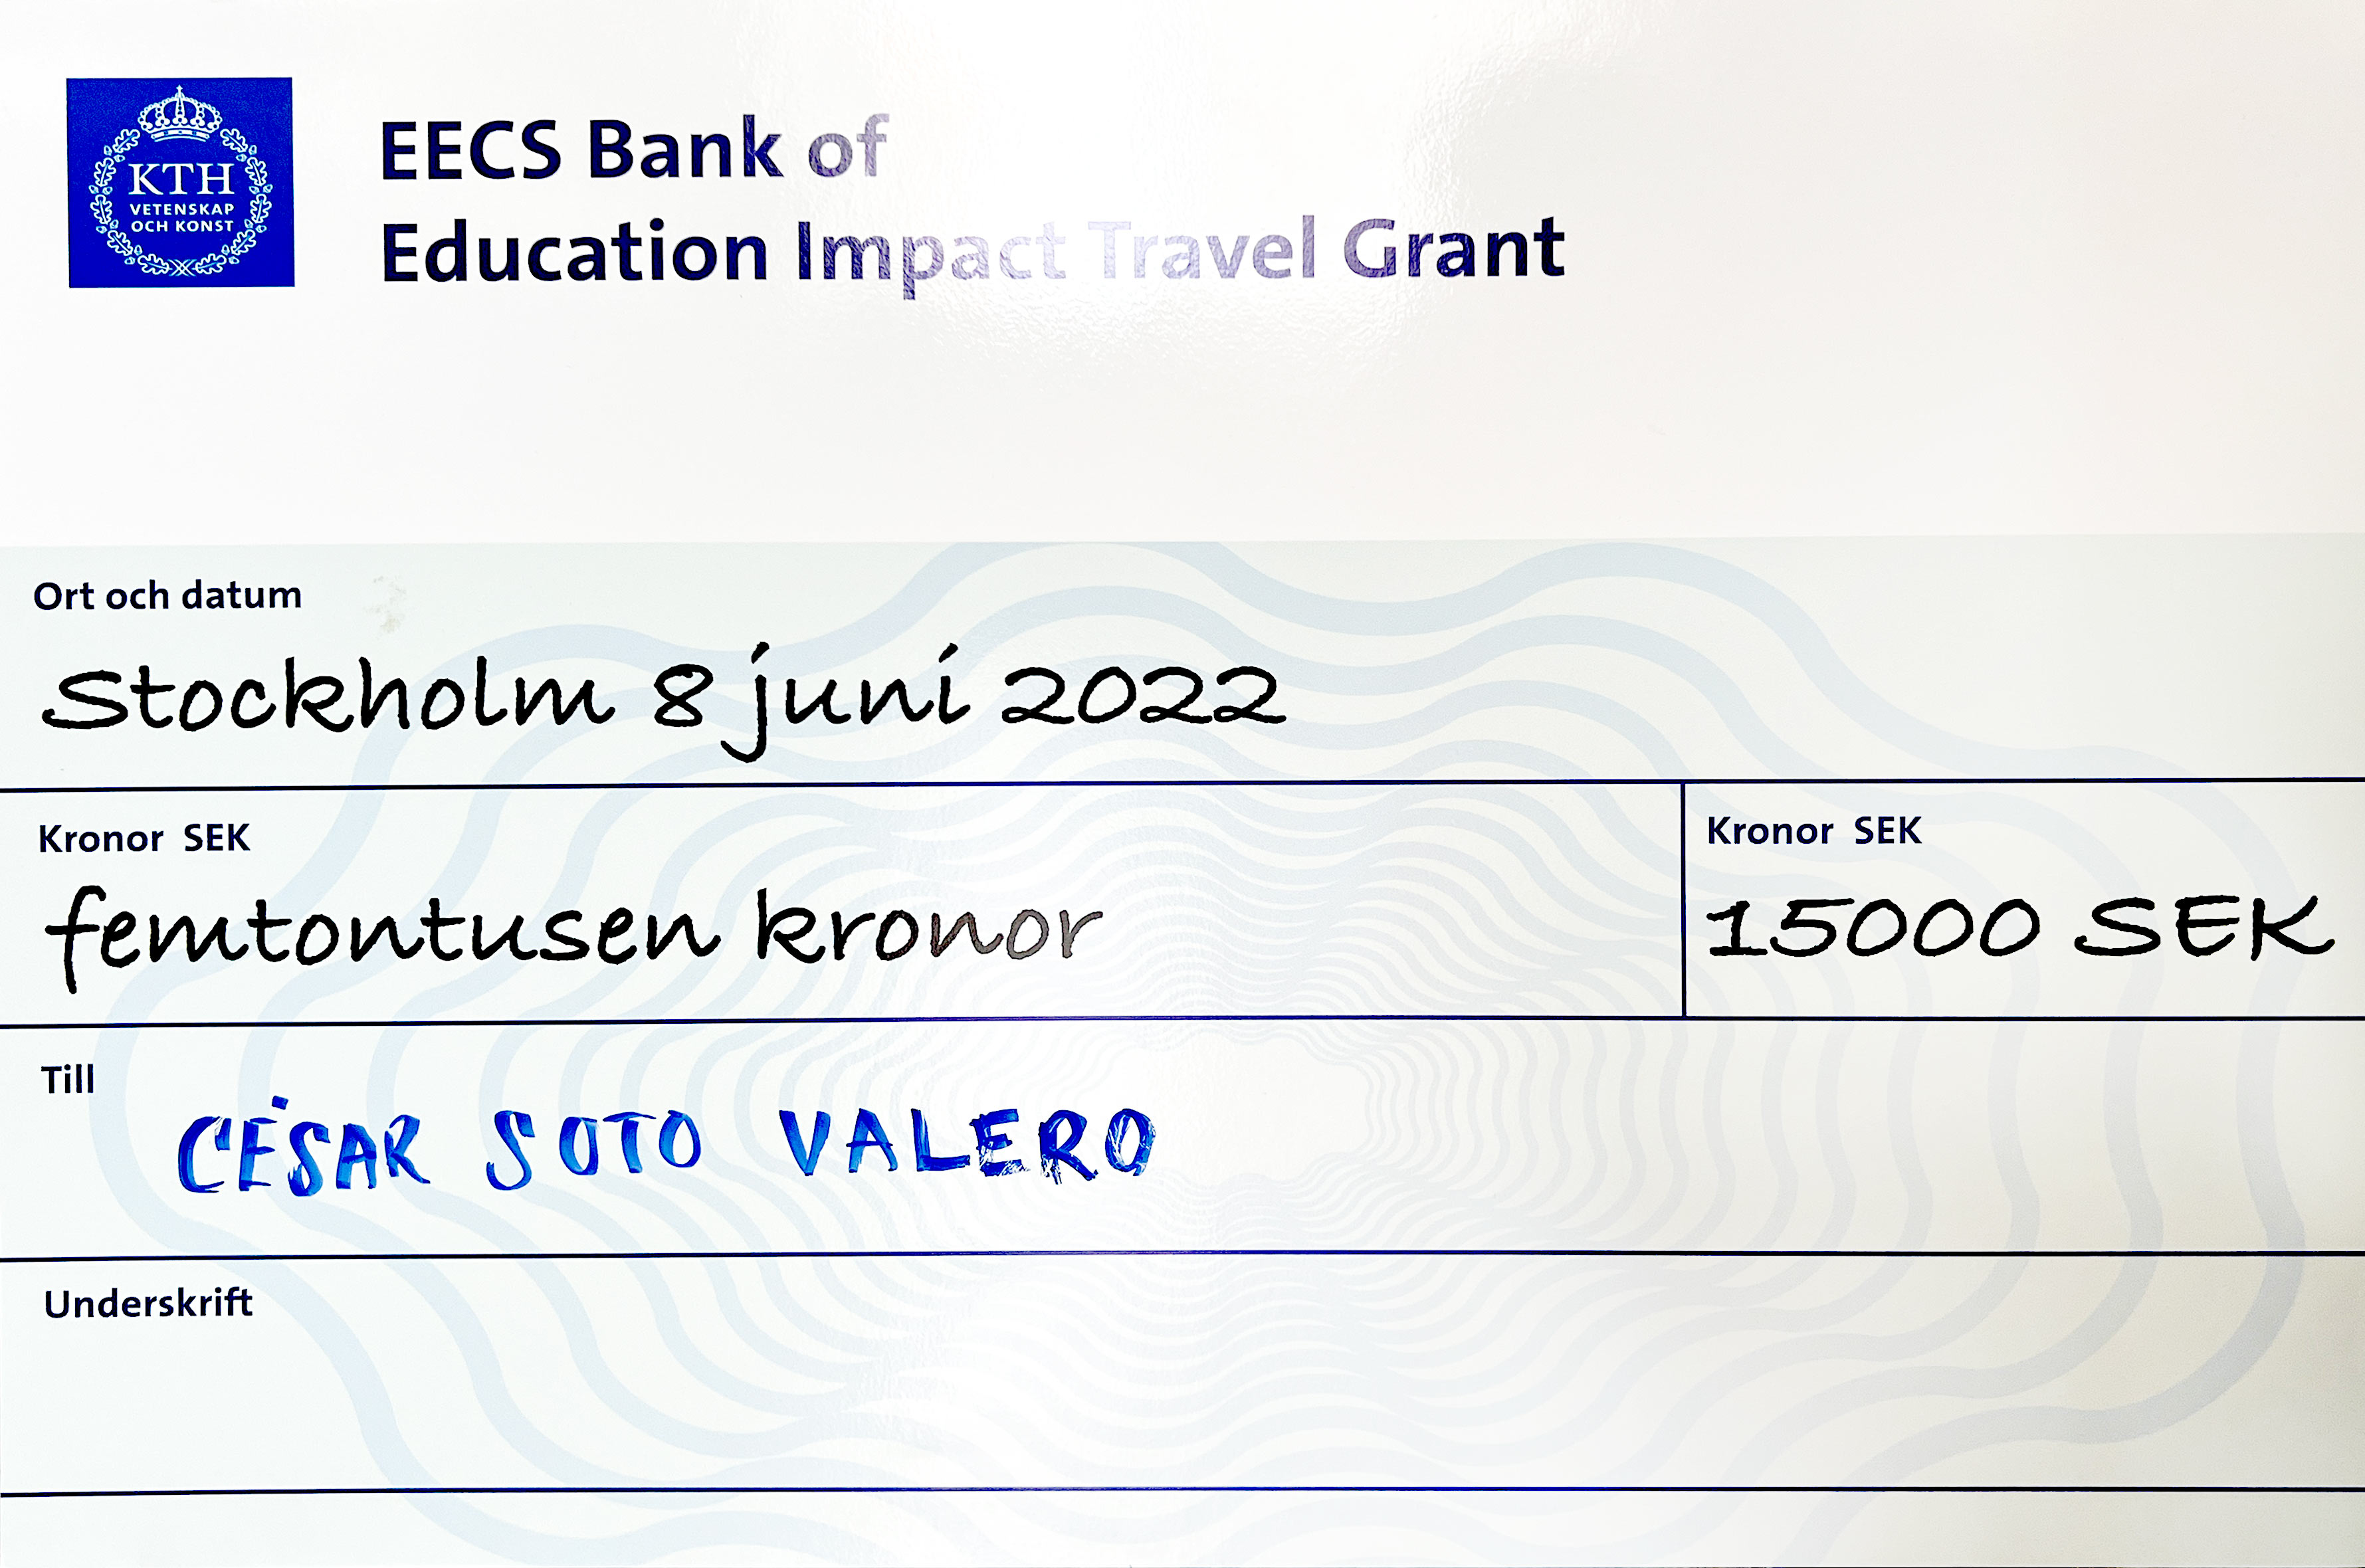 KTH
VETENSKAP
OCH KONST
EECS Bank of
Education Impact Travel Grant
Ort och datum
Stockholm 8 juni 2022
Kronor SEK
femtontusen kronor
Kronor SEK
15000 SEK
Till
CÉSAR SOTO VALERO
Underskrift